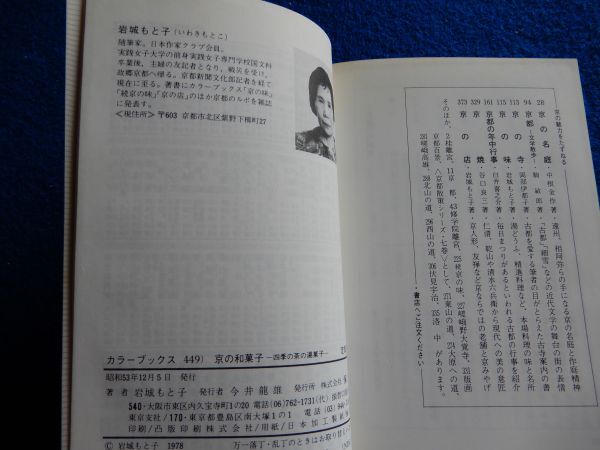 岩城もと子(いわきもとこ)
随筆家。日本作家クラブ会員。
実践女子大学の前身実践女子専門学校国文科
卒業後、主婦の友記者となり、戦災を受け、
故郷京都へ帰る。京都新聞文化部記者を経て
現在に至る。著書にカラーブックス「京の味」
「続京の味」「京の店」のほか京都のルポを雑誌
に発表す。
<現住所>〒603 京都市北区紫野下柳町27
カラーブックス 449) 京の和菓子-四季の茶の湯菓子-
昭和53年12月5日 発行
著者 岩城もと子 発行者 今井龍雄 発行所 株式会社
540・大阪市東区内久宝寺町3の20 電話(06)762-1731(代)
東京支店/170・東京都豊島区南大塚1の1 電話(03)
印刷/凸版印刷株式会社・用紙/日本加工製紙
© 岩城もと子 1978 万一落丁・乱丁のときはお取替え
京の魅力をたずねる
28 京の名庭 中根金作著・遠州、相阿弥らの手になる京の名庭と作庭精神
94 京都-文学散歩- 駒敏郎著・「古都」「細雪」などの近代文学の舞台の街の表情
113 京の寺 岡部伊都子著・古都を愛する筆者の目がとらえた古寺案内の書
115 京の味 岩城もと子著・湯どうふ、精進料理など、本場料理の味と名所
161 京都の年中行事 臼井喜之介著・毎日まつりがあるといわれる古都の行事を紹介
329 京焼 谷口良三著・仁清、乾山や清水六兵衛から現代への美の意匠
373 京の店 岩城もと子著・京人形、友禅など京ならではの老舗と京みやげ
そのほか、2桂離宮、11京都、43修学院離宮、225続京の味、227嵯峨野大覚寺、251版画
京都百景、<京都散策シリーズ・七巻>として、271東山の道、274大原への道、
281嵯峨高雄、288北山の道、296西山の道、306伏見宇治、335洛中 があります。
・書店へご注文ください